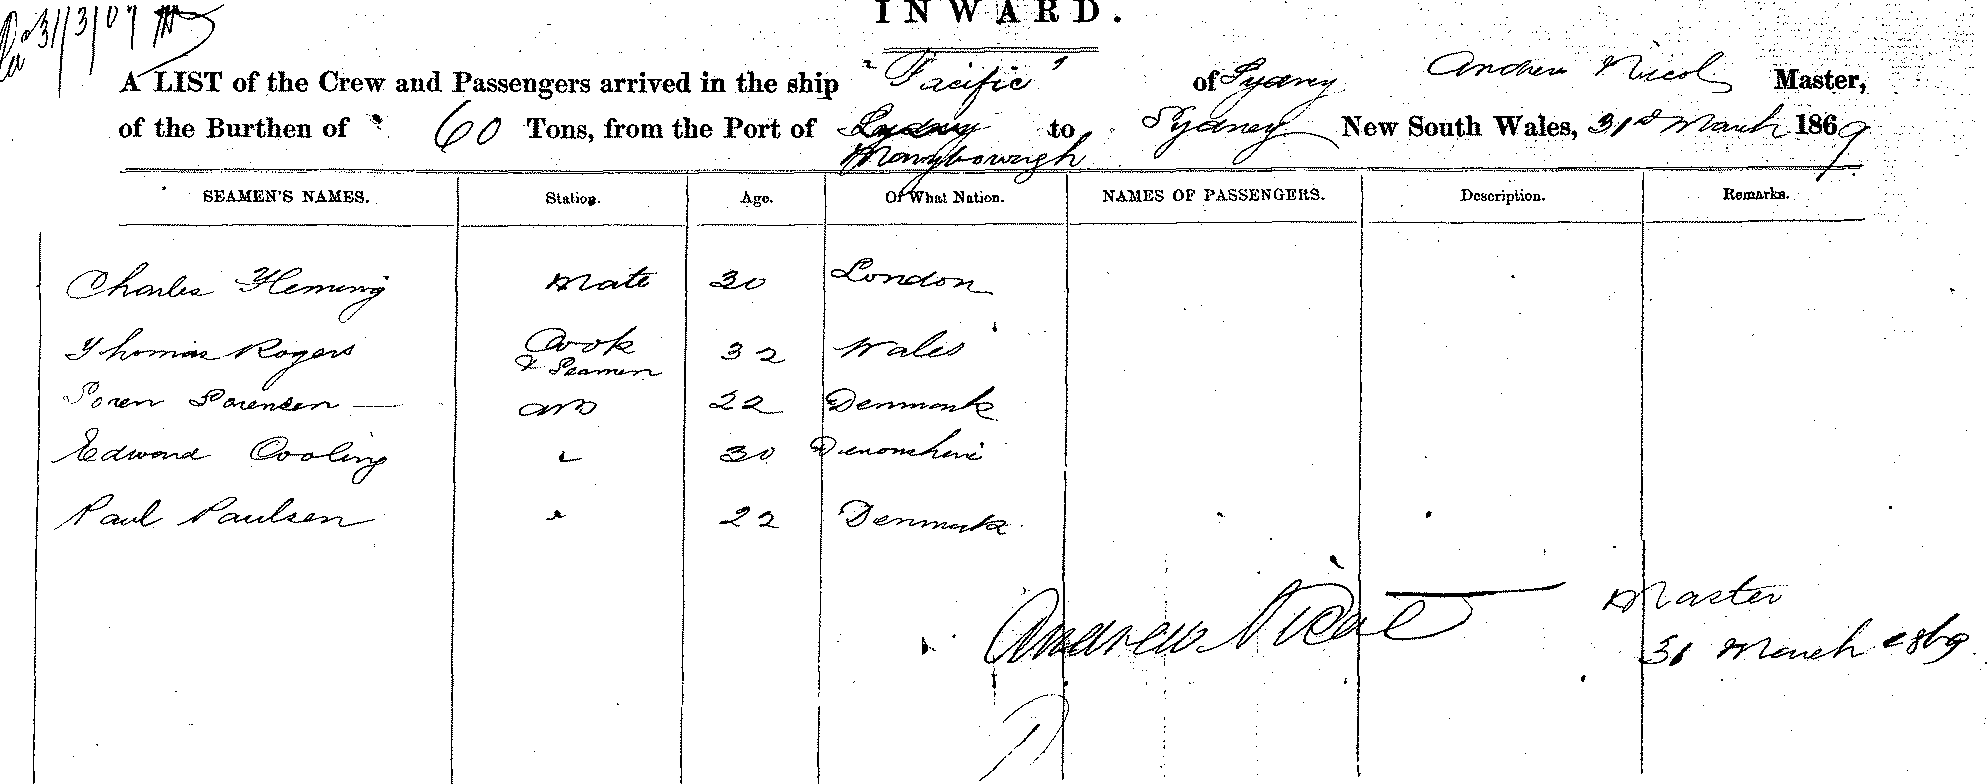 INWARD.
A LIST of the Crew and Passengers arrived in the ship "Pacific" of Sydney Andrew Nicol Master,
of the Burthen of 60 Tons, from the Port of Sydney to Sydney New South Wales, 31st March 1869
Maryborough
SEAMEN'S NAMES. Station. Age. Of What Nation. NAMES OF PASSENGERS. Description. Remarks.
Charles Fleming Mate 30 London
Thomas Rogers Cook 32 Wales
& Seamen
Soren Sorensen — AB 22 Denmark
Edward Cooling " 30 Devonshire
Paul Paulsen " 22 Denmark
Andrew Nicol Master
31 March 1869